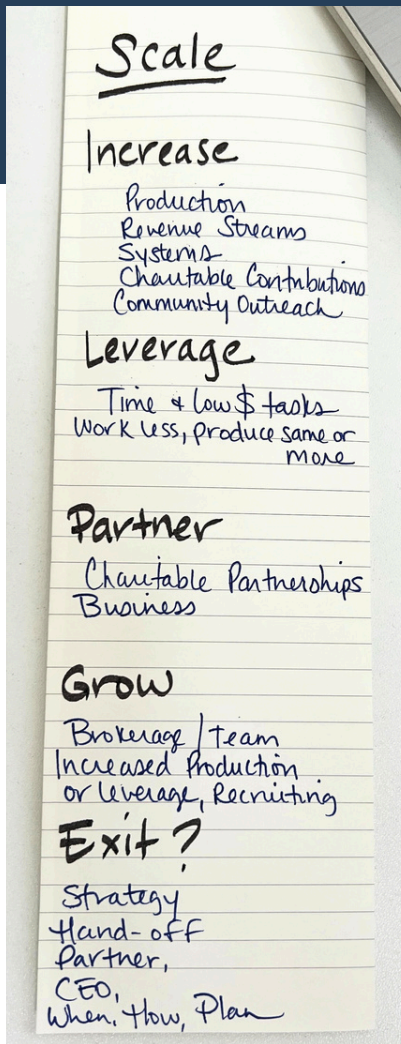 Scale
Increase
Production
Revenue Streams
Systems
Charitable Contributions
Community Outreach
Leverage
Time & low $ tasks
Work less, produce same or
more
Partner
Charitable Partnerships
Business
Grow
Brokerage / Team
Increased Production
or leverage, Recruiting
Exit?
Strategy
Hand-off
Partner,
CEO,
When, How, Plan